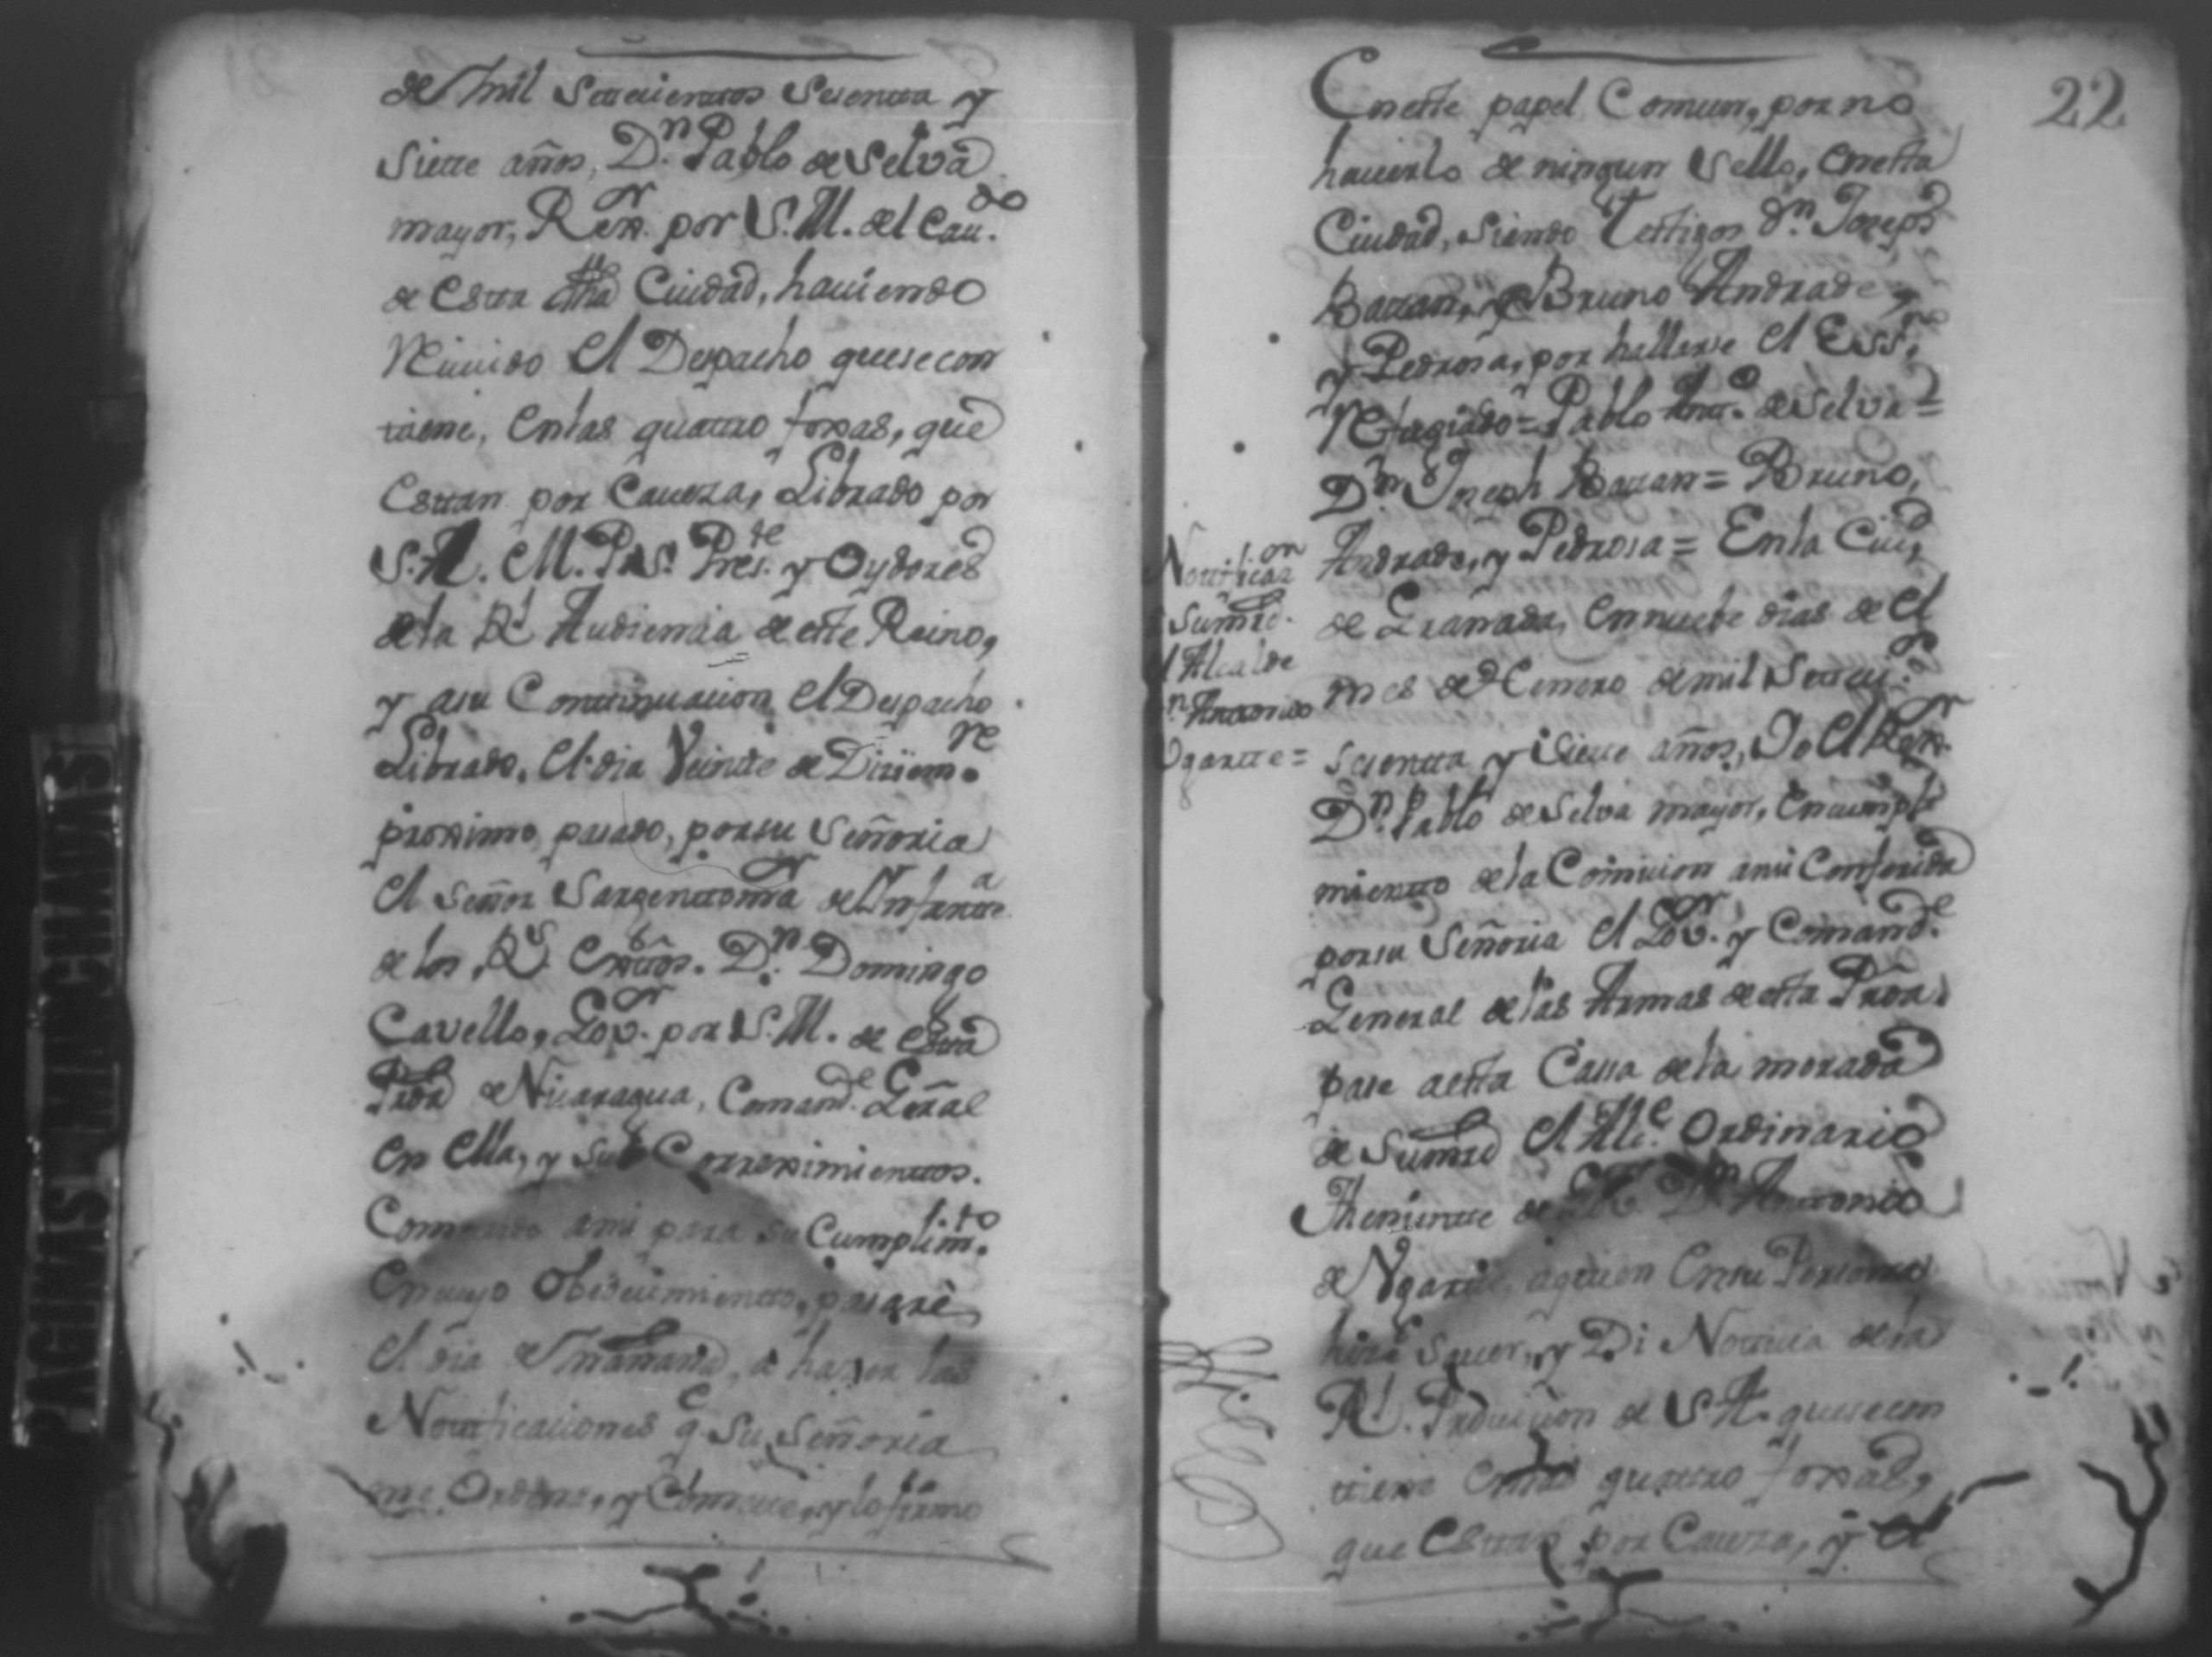 de mil Settecienttos Secentta y
Siette años, D.n Pablo de Selva
mayor, Rex.or por S. M. del Cav.do
de Estta dha Ciudad, haviendo
Recivido El Despacho que se con
tiene, En las quattro foxas, que
Esttan por Caveza, Librado por
S. A. M. P. S. Pres.te y Oydores
de la Rl Audiencia de este Reino,
y asu Conttinuacion El Despacho
Librado, El dia Veintte de Diziem.re
proximo, pasado, por su Señoria
El Señor Sargentto ma.or de Infantt.a
de los R.s Exttos. D.n Domingo
Cavello, Gov.or por S. M. de Estta
Prova de Nicaragua, Comand.te Gen̄al
En Ella, y sus Correximienttos.
ami para su Cumplim.to
En cuyo Obedecimientto, pasaré
El dia de mañana, a hazer las
Nottificaciones q.e Su Señoria
me Ordena, y Comette, y lo firmo
22
En este papel Comun, por no
haverlo de ningun Sello, En esta
Ciudad, Siendo Testigos D.n Joseph
Bazan, y Bruno Andrade y
y Pedrosa, por hallarse El Ess.no
Refugiado = Pablo Antt.o de Selva =
D.n Joseph Bazan = Bruno,
Andrade, y Pedrosa = En la Ciu.d
de Granada, En nuebe dias de El
mes de Henero de mil Setteci.os
Secentta y Siette años, Yo El Rex.or
D.n Pablo de Selva mayor, En cumpli
mientto de la Comicion ami Conferida
por su Señoria El Gov.or y Comand.te
General de las Armas de esta Prova.
pase a esta Cassa de la morada
de Sumrd El Alc.e Ordinario
Theniente de Gov.or D.n Anttonio
de Vgartte, aquien En su Persona,
hize Saver, y Di Notticia de la
Rl. Provicion de S. A. que se con
tiene En las quattro foxas,
que Esttan por Caveza, y El
Nottificaz.on
a Sumrd.
El Alcalde
D.n Anttonio
Vgartte =
PAGINAS MANCHADAS